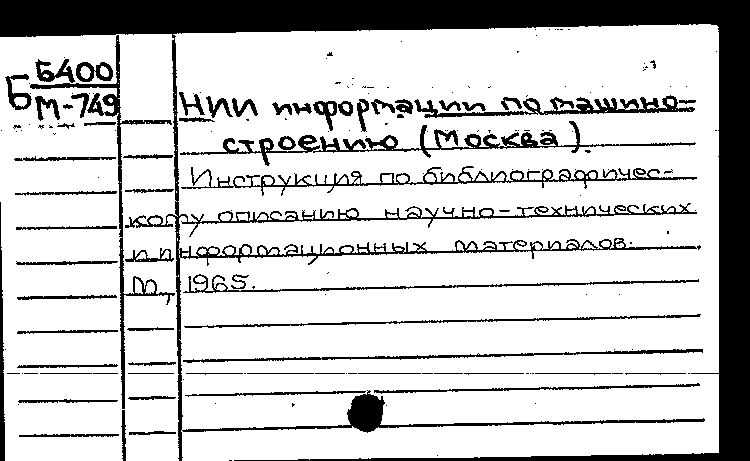 Б 5400
М-749
НИИ информации по машино-
строению (Москва).
Инструкция по библиографичес-
кому описанию научно-технических
и информационных материалов.
М, 1965.